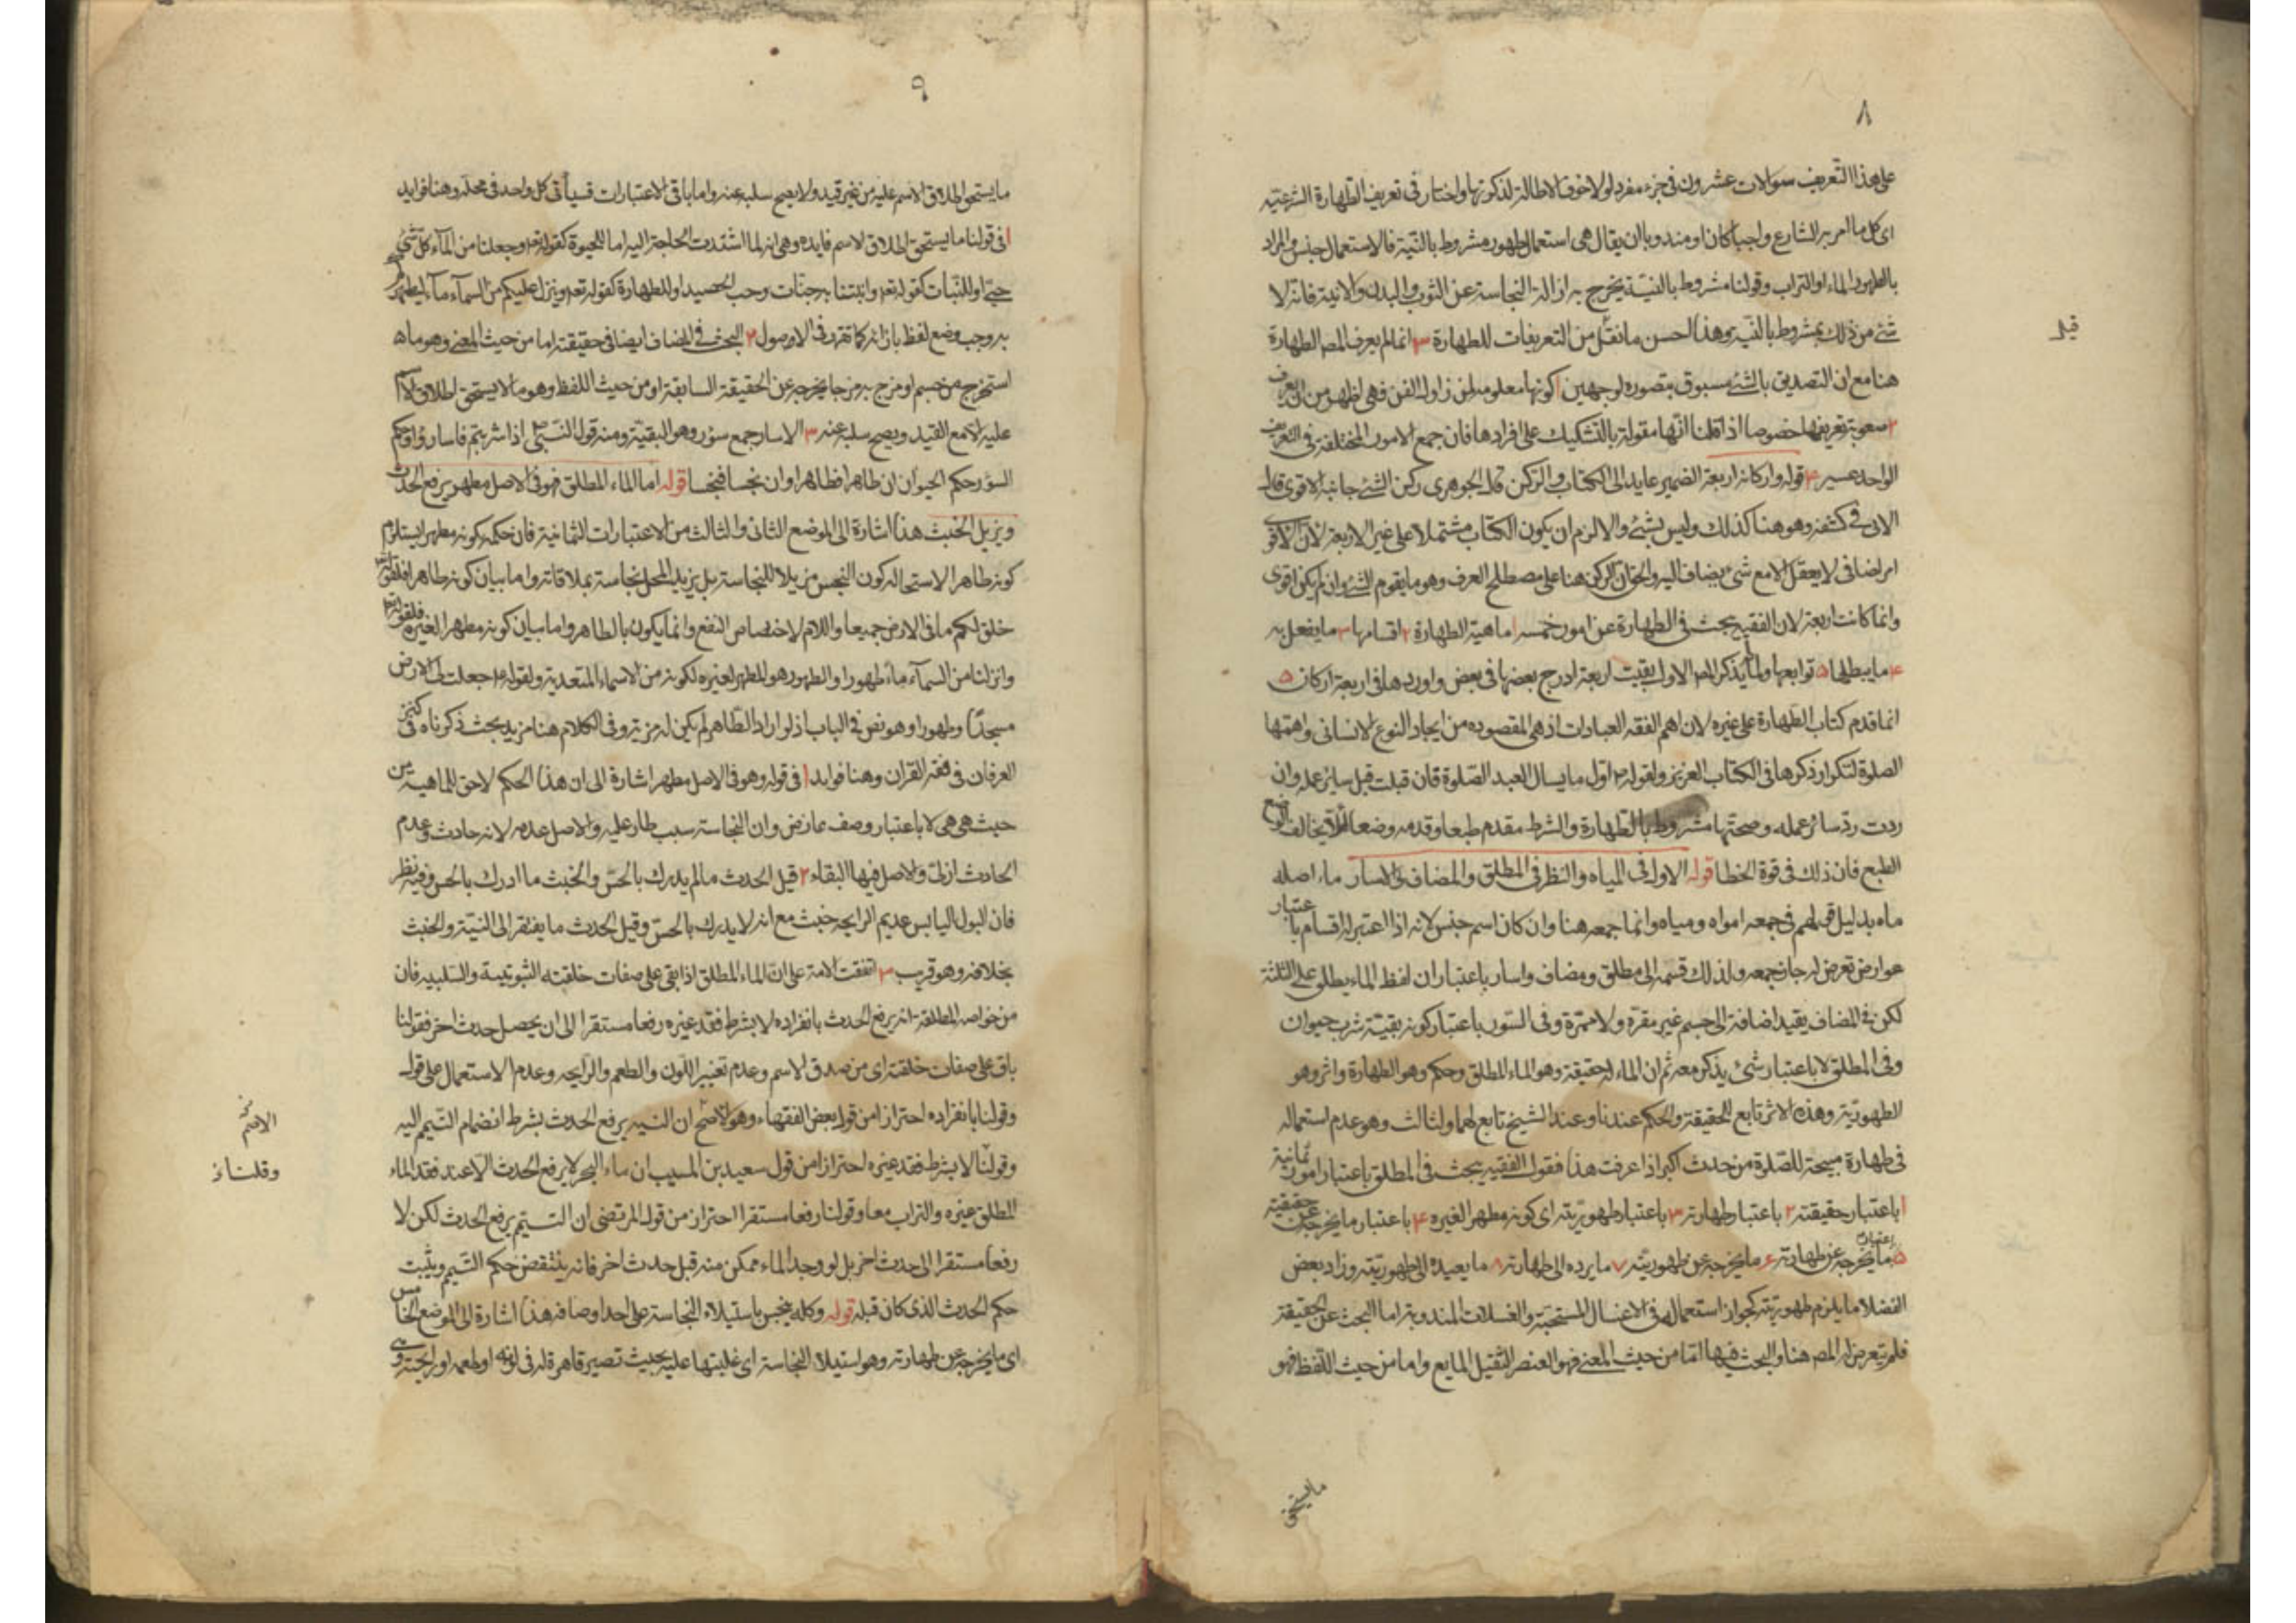 ٨
على هذا التعريف سؤالات عشرون في جزء مفرد لولا خوف الاطالة لذكرتها واختار في تعريف الطهارة الشرعية
اى كل ما امر به الشارع واجبا كان او مندوبا ان يقال هى استعمال طهور مشروط بالنية فالاستعمال جنس والمراد
بالطهور الماء او التراب وقولنا مشروط بالنية يخرج به ازالة النجاسة عن الثوب والبدن والانية فانه لا
شئ من ذلك بمشروط بالنية وهذا احسن ما نقل من التعريفات للطهارة ٣ انما لم يعرف المص الطهارة
قيل
هنا مع ان التصديق بالشئ مسبوق بتصوره لوجهين ا كونها معلومة لمن زاول الفن فهى اظهر من ان يعرف
٢ صعوبة تعريفها خصوصا اذا قلنا انها مقولة بالتشكيك على افرادها فان جمع الامور المختلفة في التعريف
الواحد عسير ٤ قوله واركانه اربعة الضمير عايد الى الكتاب والركن قال الجوهرى ركن الشئ جانبه الاقوى قال
الابى في كشفه وهو هنا كذلك وليس بشئ والا لزم ان يكون الكتاب مشتملا على غير الاربعة لان الاقوى
امر اضافى لا يعقل الا مع شئ يضاف اليه والحق ان الركن هنا على مصطلح العرف وهو ما يقوم الشئ وان لم يكن اقوى
وانما كانت اربعة لان الفقيه يبحث في الطهارة عن امور خمسة ا ماهية الطهارة ٢ اقسامها ٣ ما يفعل به
٤ ما يبطلها ٥ توابعها ولما لم يذكر المص الاول بقيت اربعة ادرج بعضها في بعض واوردها في اربعة اركان ٥
انما قدم كتاب الطهارة على غيره لان اهم الفقه العبادات اذ هى المقصوده من ايجاد النوع الانسانى واهمها
الصلوة لتكرار ذكرها في الكتاب العزيز ولقوله ع اول ما يسال العبد الصلوة فان قبلت قبل ساير عمله وان
ردت رد سائر عمله وصحتها مشروط بالطهارة والشرط مقدم طبعا وقدمه وضعا لئلا يخالف الوضع
الطبع فان ذلك في قوة الخطا قوله الاول في المياه والنظر في المطلق والمضاف والاسار ماء اصله
ماه بدليل قولهم في جمعه امواه ومياه وانما جمعه هنا وان كان اسم جنس لانه اذا اعتبر له اقسام باعتبار
عوارض تعرض له جاز جمعه ولذلك قسمه الى مطلق ومضاف واسار باعتبار ان لفظ الماء يطلق على الثلثة
لكن في المضاف بقيد اضافته الى جسم غير مقره ولا ممره وفى السور باعتبار كونه بقية شرب حيوان
وفى المطلق لا باعتبار شئ يذكر معه ثم ان الماء له حقيقة وهو الماء المطلق وحكم وهو الطهارة واثر وهو
الطهورية وهذه الاثر تابع للحقيقة والحكم عندنا وعند الشيخ تابع لهما ولثالث وهو عدم استعماله
في طهارة مبيحة للصلوة من حدث اكبر اذا عرفت هذا فقول الفقيه يبحث في المطلق باعتبار امور ثمانية
ا باعتبار حقيقته ٢ باعتبار طهارته ٣ باعتبار طهوريته اى كونه مطهرا لغيره ٤ باعتبار ما يخرجه عن حقيقته
٥ باعتبار ما يخرجه عن طهارته ٦ ما يخرجه عن طهوريته ٧ ما يرده الى طهارته ٨ ما يعيده الى طهوريته وزاد بعض
الفضلا ما يلزم طهوريته كجواز استعماله في الاغسال المستحبة والغسلات المندوبة اما البحث عن الحقيقة
فلم يتعرض له المص هنا والبحث فيها اما من حيث المعنى فهو العنصر الثقيل المايع واما من حيث اللفظ فهو
ما يستحق
٩
ما يستحق اطلاق الاسم عليه من غير قيد ولا يصح سلبه عنه واما باقى الاعتبارات فسيأتى كل واحد في محله وهنا فوايد
ا في قولنا ما يستحق اطلاق الاسم فايده وهى انه لما اشتدت الحاجة اليه اما للحيوة كقوله تع وجعلنا من الماء كل شئ
حى او للنبات كقوله تع وانبتنا به جنات وحب الحصيد او للطهارة كقوله تع وينزل عليكم من السماء ماء ليطهركم
به وجب وضع لفظ بازائه كما تقرر في الاصول ٢ البحث في المضاف ايضا في حقيقته اما من حيث المعنى وهو ما
استخرج من جسم او مزج به مزجا يخرجه عن الحقيقة السابقة او من حيث اللفظ وهو ما لا يستحق اطلاق الاسم
عليه الا مع القيد ويصح سلبه عنه ٣ الاسار جمع سؤر وهو البقية ومنه قول النبى ص اذا شربتم فاسأروا وحكم
السؤر حكم الحيوان ان طاهرا فطاهرا وان نجسا فنجسا قوله اما الماء المطلق فهو في الاصل مطهر يرفع الحدث
ويزيل الخبث هذا اشارة الى الموضع الثانى والثالث من الاعتبارات الثمانية فان حكمه كونه مطهرا يستلزم
كونه طاهرا لاستحاله كون النجس مزيلا للنجاسة بل يزيد المحل نجاسة بملاقاته واما بيان كونه طاهرا فلقوله تع
خلق لكم ما في الارض جميعا واللام لاختصاص النفع وانما يكون بالطاهر واما بيان كونه مطهرا لغيره فلقوله تع
وانزلنا من السماء ماء طهورا والطهور هو المطهر لغيره لكونه من الاسماء المتعدية ولقوله ع جعلت لى الارض
مسجدا وطهورا وهو نص في الباب اذ لو اراد الطاهر لم يكن له مزية وفى الكلام هنا مزيد بحث ذكرناه في كنز
العرفان في فقه القران وهنا فوايد ا في قوله وهو في الاصل مطهر اشارة الى ان هذا الحكم لاحق للماهية من
حيث هى هى لا باعتبار وصف عارض وان النجاسة سبب طار عليه والاصل عدمه لانه حادث وعدم
الحادث ازلى والاصل فيها البقاء ٢ قيل الحدث ما لم يدرك بالحس والخبث ما ادرك بالحس وفيه نظر
فان البول اليابس عديم الرايحه خبث مع انه لا يدرك بالحس وقيل الحدث ما يفتقر الى النية والخبث
بخلافه وهو قريب ٣ اتفقت الامة على ان الماء المطلق اذا بقى على صفات خلقته الثبوتية والسلبيه فان
من خواصه المطلقة انه يرفع الحدث بانفراده لا بشرط فقد غيره رفعا مستقرا الى ان يحصل حدث اخر فقولنا
باق على صفات خلقته اى من صدق الاسم وعدم تغير اللون والطعم والرايحه وعدم الاستعمال على قول
وقولنا بانفراده احترازا من قول بعض الفقهاء وهو الاصح ان النبيذ يرفع الحدث بشرط انضمام التيمم اليه
الاصم
وقولنا لا بشرط فقد غيره احترازا من قول سعيد بن المسيب ان ماء البحر لا يرفع الحدث الا عند فقد الماء
وقلنا
المطلق غيره والتراب معا وقولنا رفعا مستقرا احتراز من قول المرتضى ان التيمم يرفع الحدث لكن لا
رفعا مستقرا الى حدث اخر بل لو وجد الماء ممكن منه قبل حدث اخر فانه ينتقض حكم التيمم ويثبت
حكم الحدث الذى كان قبله قوله وكله ينجس باستيلاء النجاسة على احد اوصافه هذا اشارة الى الموضع الخامس
اى ما يخرجه عن طهارته وهو استيلاء النجاسة اى غلبتها عليه بحيث تصير قاهرة له في لونه او طعمه او رايحته